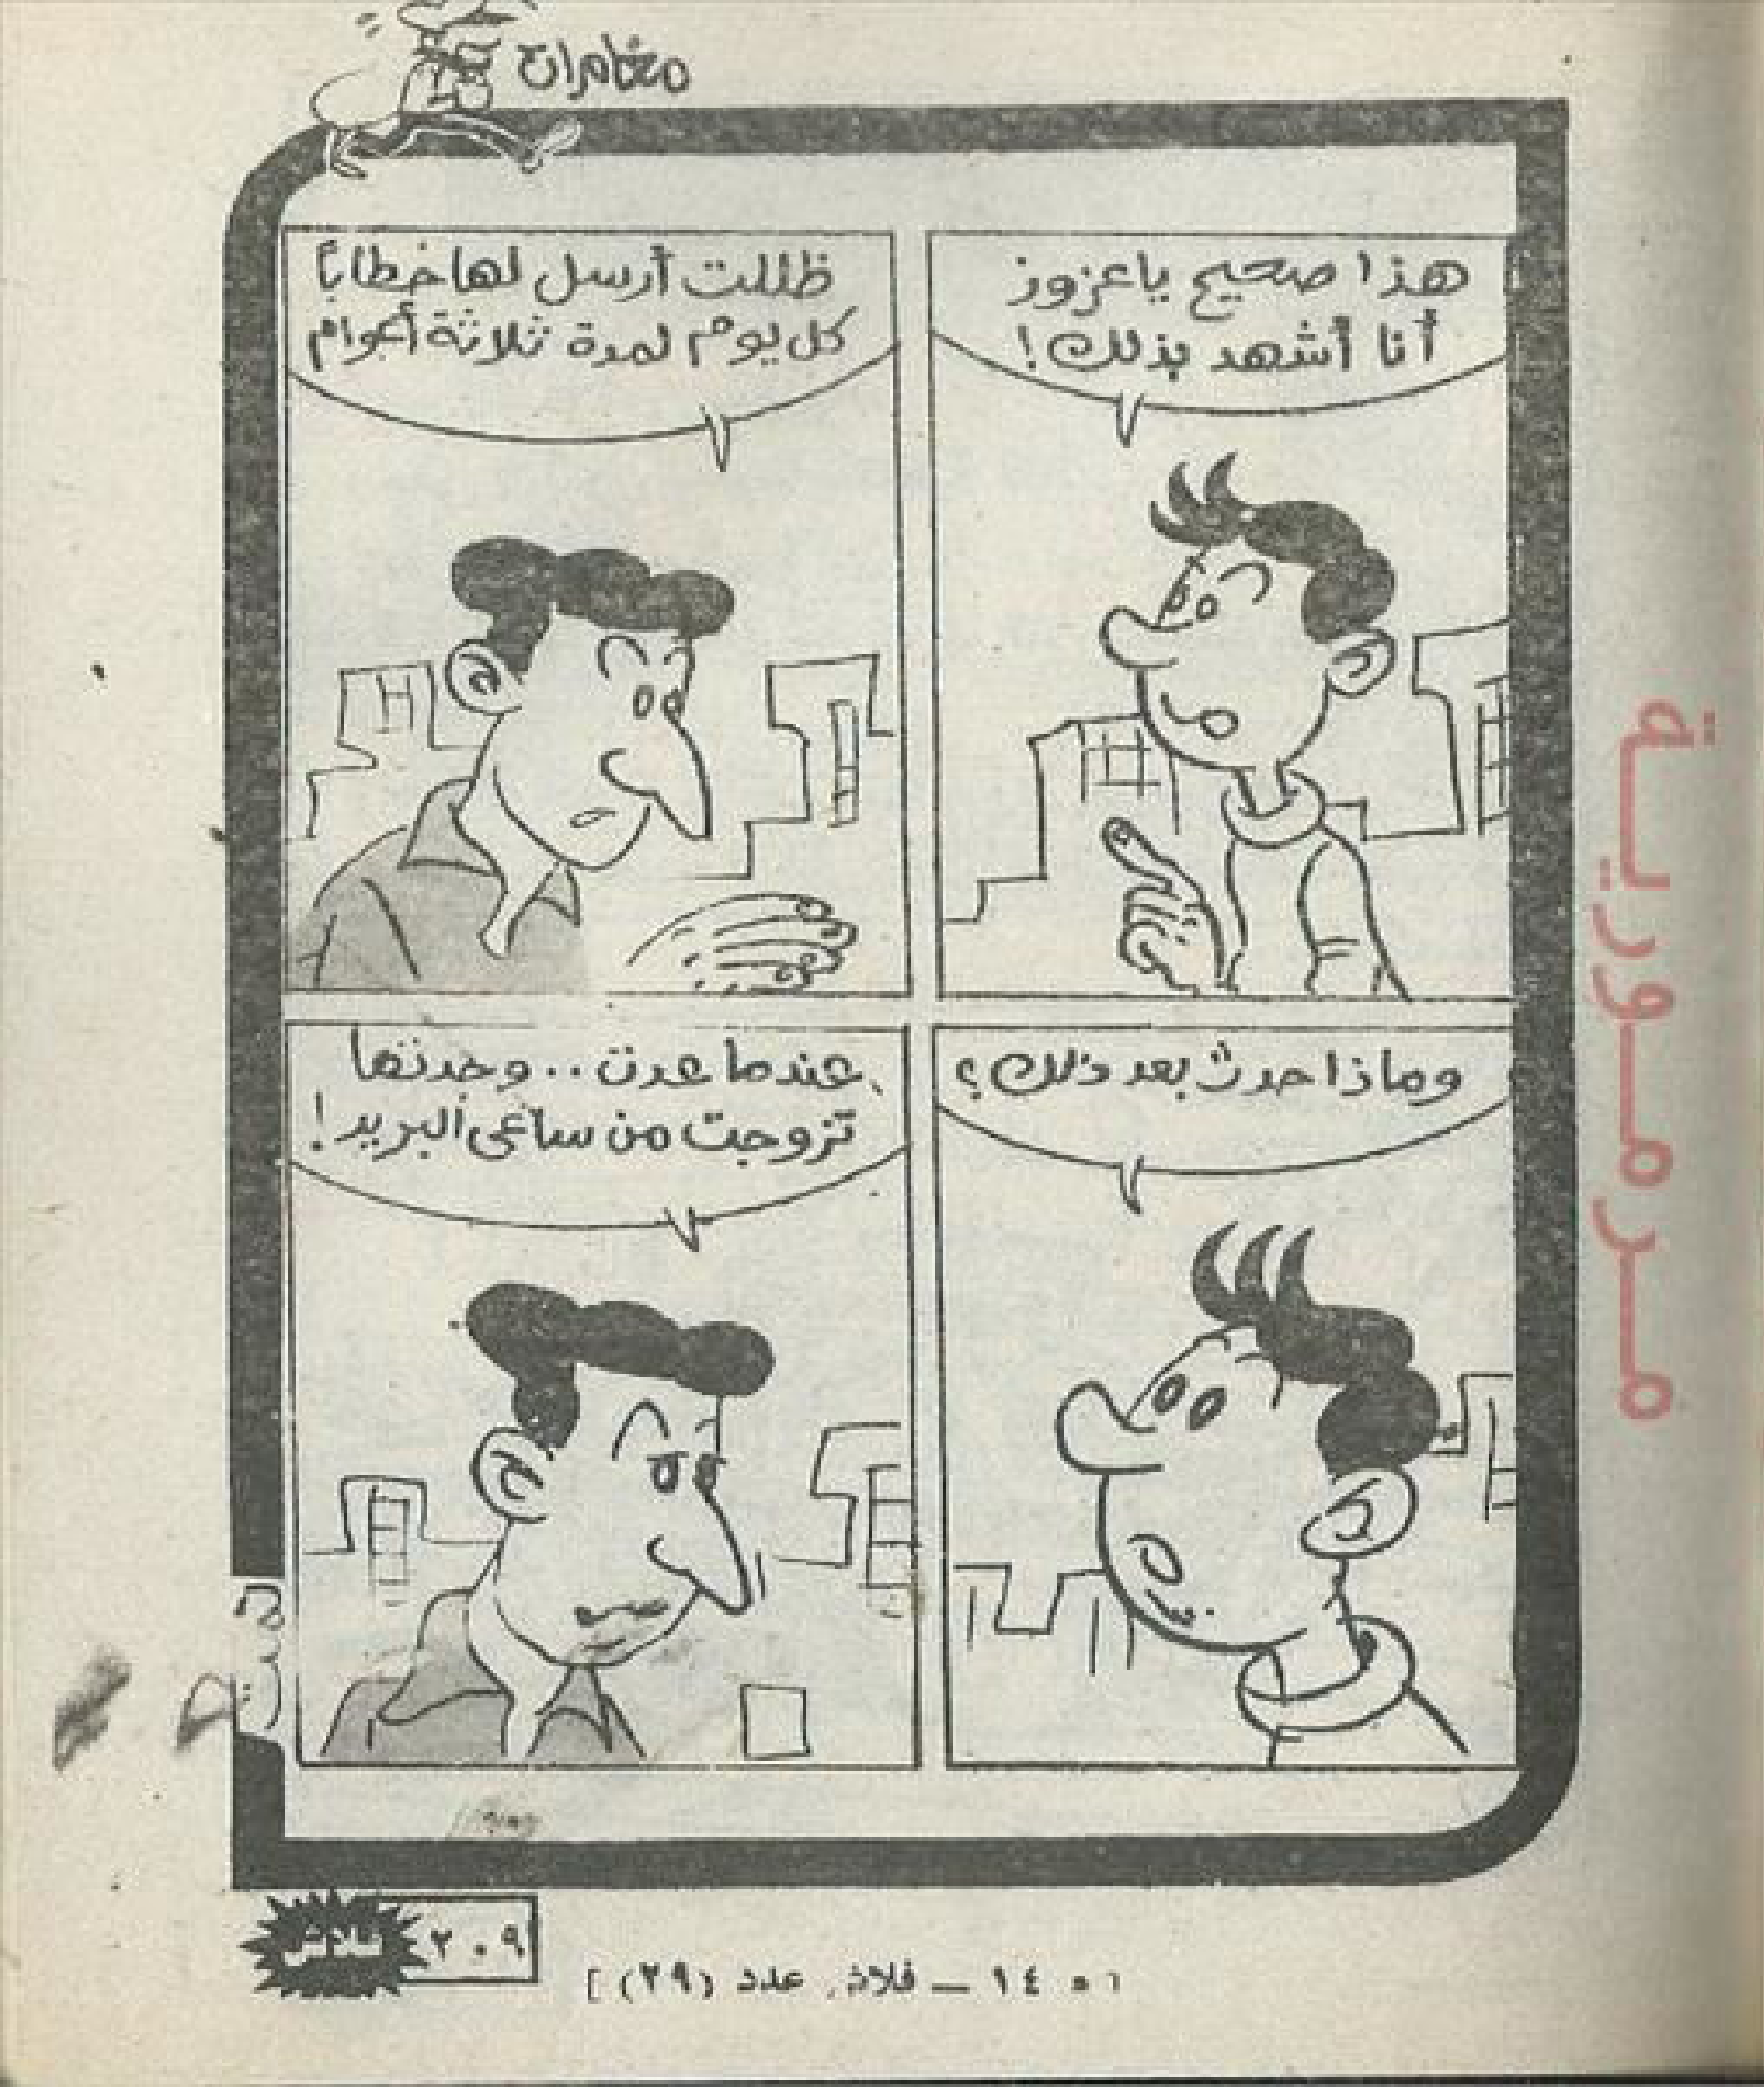 مغامرات
هذا صحيح ياعزوز
أنا أشهد بذلك!
ظللت أرسل لها خطاباً
كل يوم لمدة ثلاثة أعوام
وماذا حدث بعد ذلك؟
عندما عدت .. وجدتها
تزوجت من ساعى البريد!
مرمورية
٢٠٩
فلاش
١٤ — فلاش, عدد (٢٩) ]